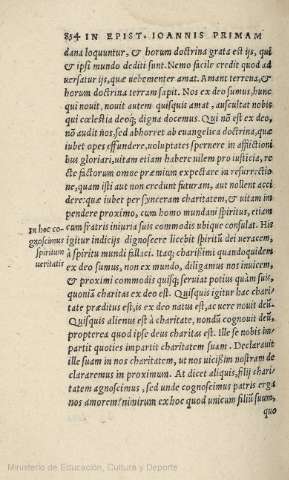 854 IN EPIST. IOANNIS PRIMAM
dana loquuntur, & horum doctrina grata est ijs, qui
& ipsi mundo dediti sunt. Nemo facile credit quod ad
uersatur ijs, quæ uehementer amat. Amant terrena, &
horum doctrina terram sapit. Nos ex deo sumus, hunc
qui nouit, nouit autem quisquis amat, auscultat nobis
qui cœlestia deoq; digna docemus. Qui nō est ex deo,
nō audit nos, sed abhorret ab euangelica doctrina, quæ
iubet opes effundere, uoluptates spernere in afflictioni
bus gloriari, uitam etiam habere uilem pro iusticia, re
cte factorum omne præmium expectare in resurrectio
ne, quam isti aut non credunt futuram, aut nollent acci
dere: quæ iubet per synceram charitatem, & uitam im
pendere proximo, cum homo mundani spiritus, etiam
cum fratris iniuria suis commodis ubique consulat. His
igitur indicijs dignoscere licebit spiritū dei ueracem,
à spiritu mundi fallaci. Itaq; charissimi quandoquidem
ex deo sumus, non ex mundo, diligamus nos inuicem,
& proximi commodis quisq; seruiat potius quàm suis,
quoniā charitas ex deo est. Quisquis igitur hac chari-
tate præditus est, is ex deo natus est, ac uere nouit deū.
Quisquis alienus est à charitate, nondū cognouit deū,
propterea quod ipse deus charitas est. Ille se nobis im-
partit quoties impartit charitatem suam. Declarauit
ille suam in nos charitatem, ut nos uicissim nostram de
clararemus in proximum. At dicet aliquis, filij chari-
tatem agnoscimus, sed unde cognoscimus patris erga
nos amorem? nimirum ex hoc quod unicum filiū suum,
quo
In hoc co-
gnoscimus
spiritum
ueritatis
Ministerio de Educación, Cultura y Deporte